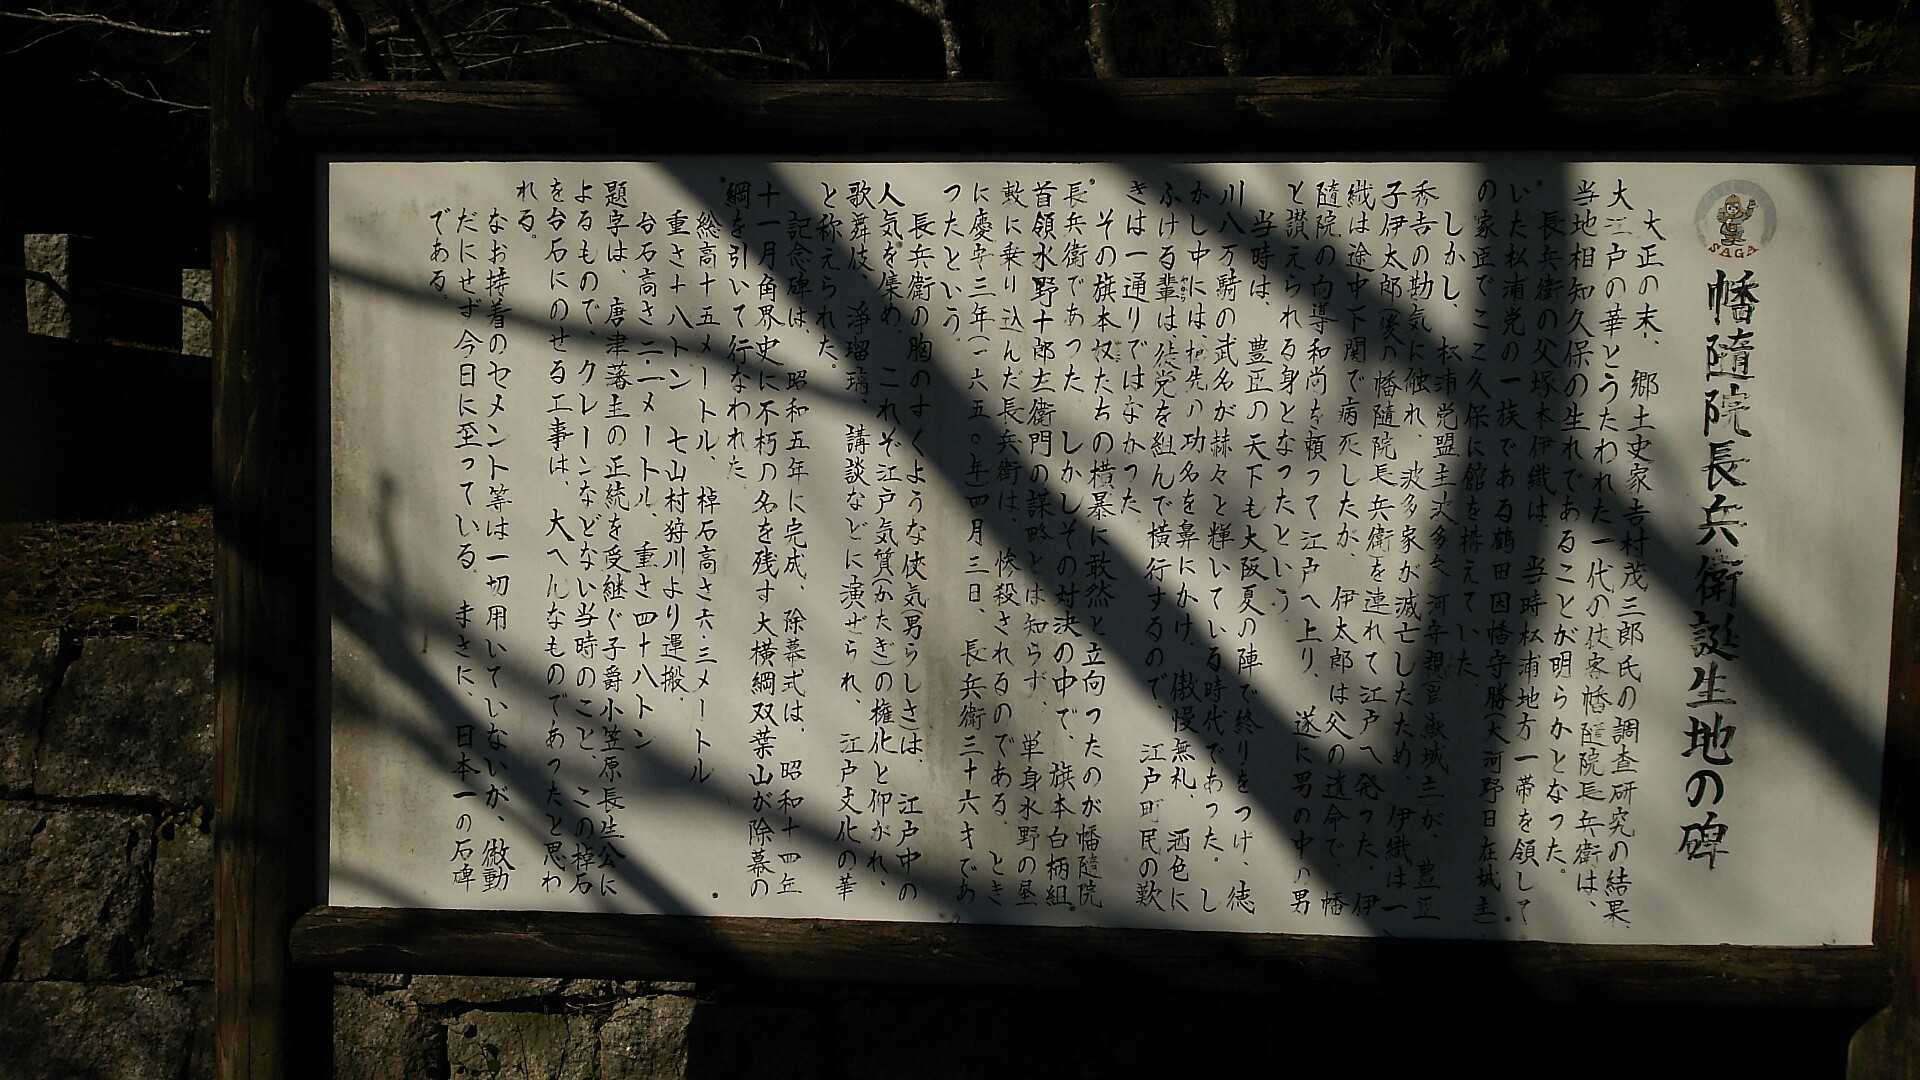 SAGA
幡隨院長兵衛誕生地の碑
大正の末、郷土史家吉村茂三郎氏の調査研究の結果、
大江戸の華とうたわれた一代の侠客幡隨院長兵衛は、
当地相知久保の生れであることが明らかとなった。
長兵衛の父塚本伊織は、当時松浦地方一帯を領して
いた松浦党の一族である鶴田因幡守勝(大河野日在城主)
の家臣でここ久保に館を構えていた。
しかし、松浦党盟主波多三河守親(岸嶽城主)が、豊臣
秀吉の勘気に触れ、波多家が滅亡したため、伊織は一
子伊太郎(後の幡隨院長兵衛)を連れて江戸へ発った。伊
織は途中下関で病死したが、伊太郎は父の遺命で、幡
隨院の向導和尚を頼って江戸へ上り、遂に男の中の男
と讃えられる身となったという。
当時は、豊臣の天下も大阪夏の陣で終りをつげ、徳
川八万騎の武名が赫々と輝いている時代であった。し
かし中には、槍先の功名を鼻にかけ、傲慢無礼、酒色に
ふける輩は徒党を組んで横行するので、江戸町民の歎
きは一通りではなかった。
その旗本奴たちの横暴に敢然と立向ったのが幡隨院
長兵衛であった。しかしその対決の中で、旗本白柄組
首領水野十郎左衛門の謀略とは知らず、単身水野の屋
敷に乗り込んだ長兵衛は、惨殺されるのである。とき
に慶安三年(一六五〇年)四月三日、長兵衛三十六才であ
ったという。
長兵衛の胸のすくような侠気男らしさは、江戸中の
人気を集め、これぞ江戸気質(かたぎ)の権化と仰がれ、
歌舞伎、浄瑠璃、講談などに演ぜられ、江戸文化の華
と称えられた。
記念碑は、昭和五年に完成、除幕式は、昭和十四年
十一月角界史に不朽の名を残す大横綱双葉山が除幕の
綱を引いて行なわれた。
総高十五メートル、棹石高さ六・三メートル
重さ十八トン 七山村狩川より運搬、
台石高さ二・一メートル、重さ四十八トン
題字は、唐津藩主の正統を受継ぐ子爵小笠原長生公に
よるもので、クレーンなどない当時のこと、この棹石
を台石にのせる工事は、大へんなものであったと思わ
れる。
なお接着のセメント等は一切用いていないが、微動
だにせず今日に至っている。まさに、日本一の石碑
である。